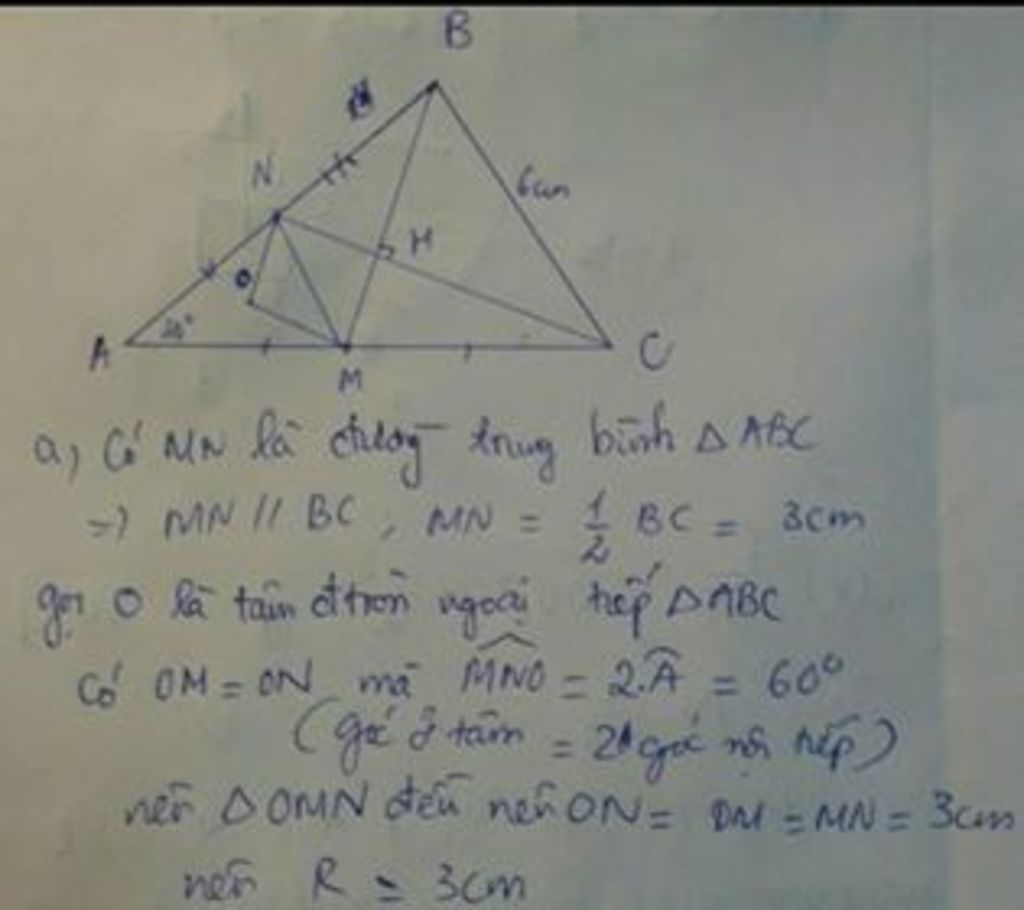 B
N
6cm
H
O
30°
A
M
C
a, Có MN là đường trung bình △ABC
=> MN // BC, MN = 1/2 BC = 3cm
gọi O là tâm đtròn ngoại tiếp △ABC
Có OM = ON mà MNO = 2.Â = 60°
(góc ở tâm = 2 góc nội tiếp)
nên △OMN đều nên ON = OM = MN = 3cm
nên R = 3cm